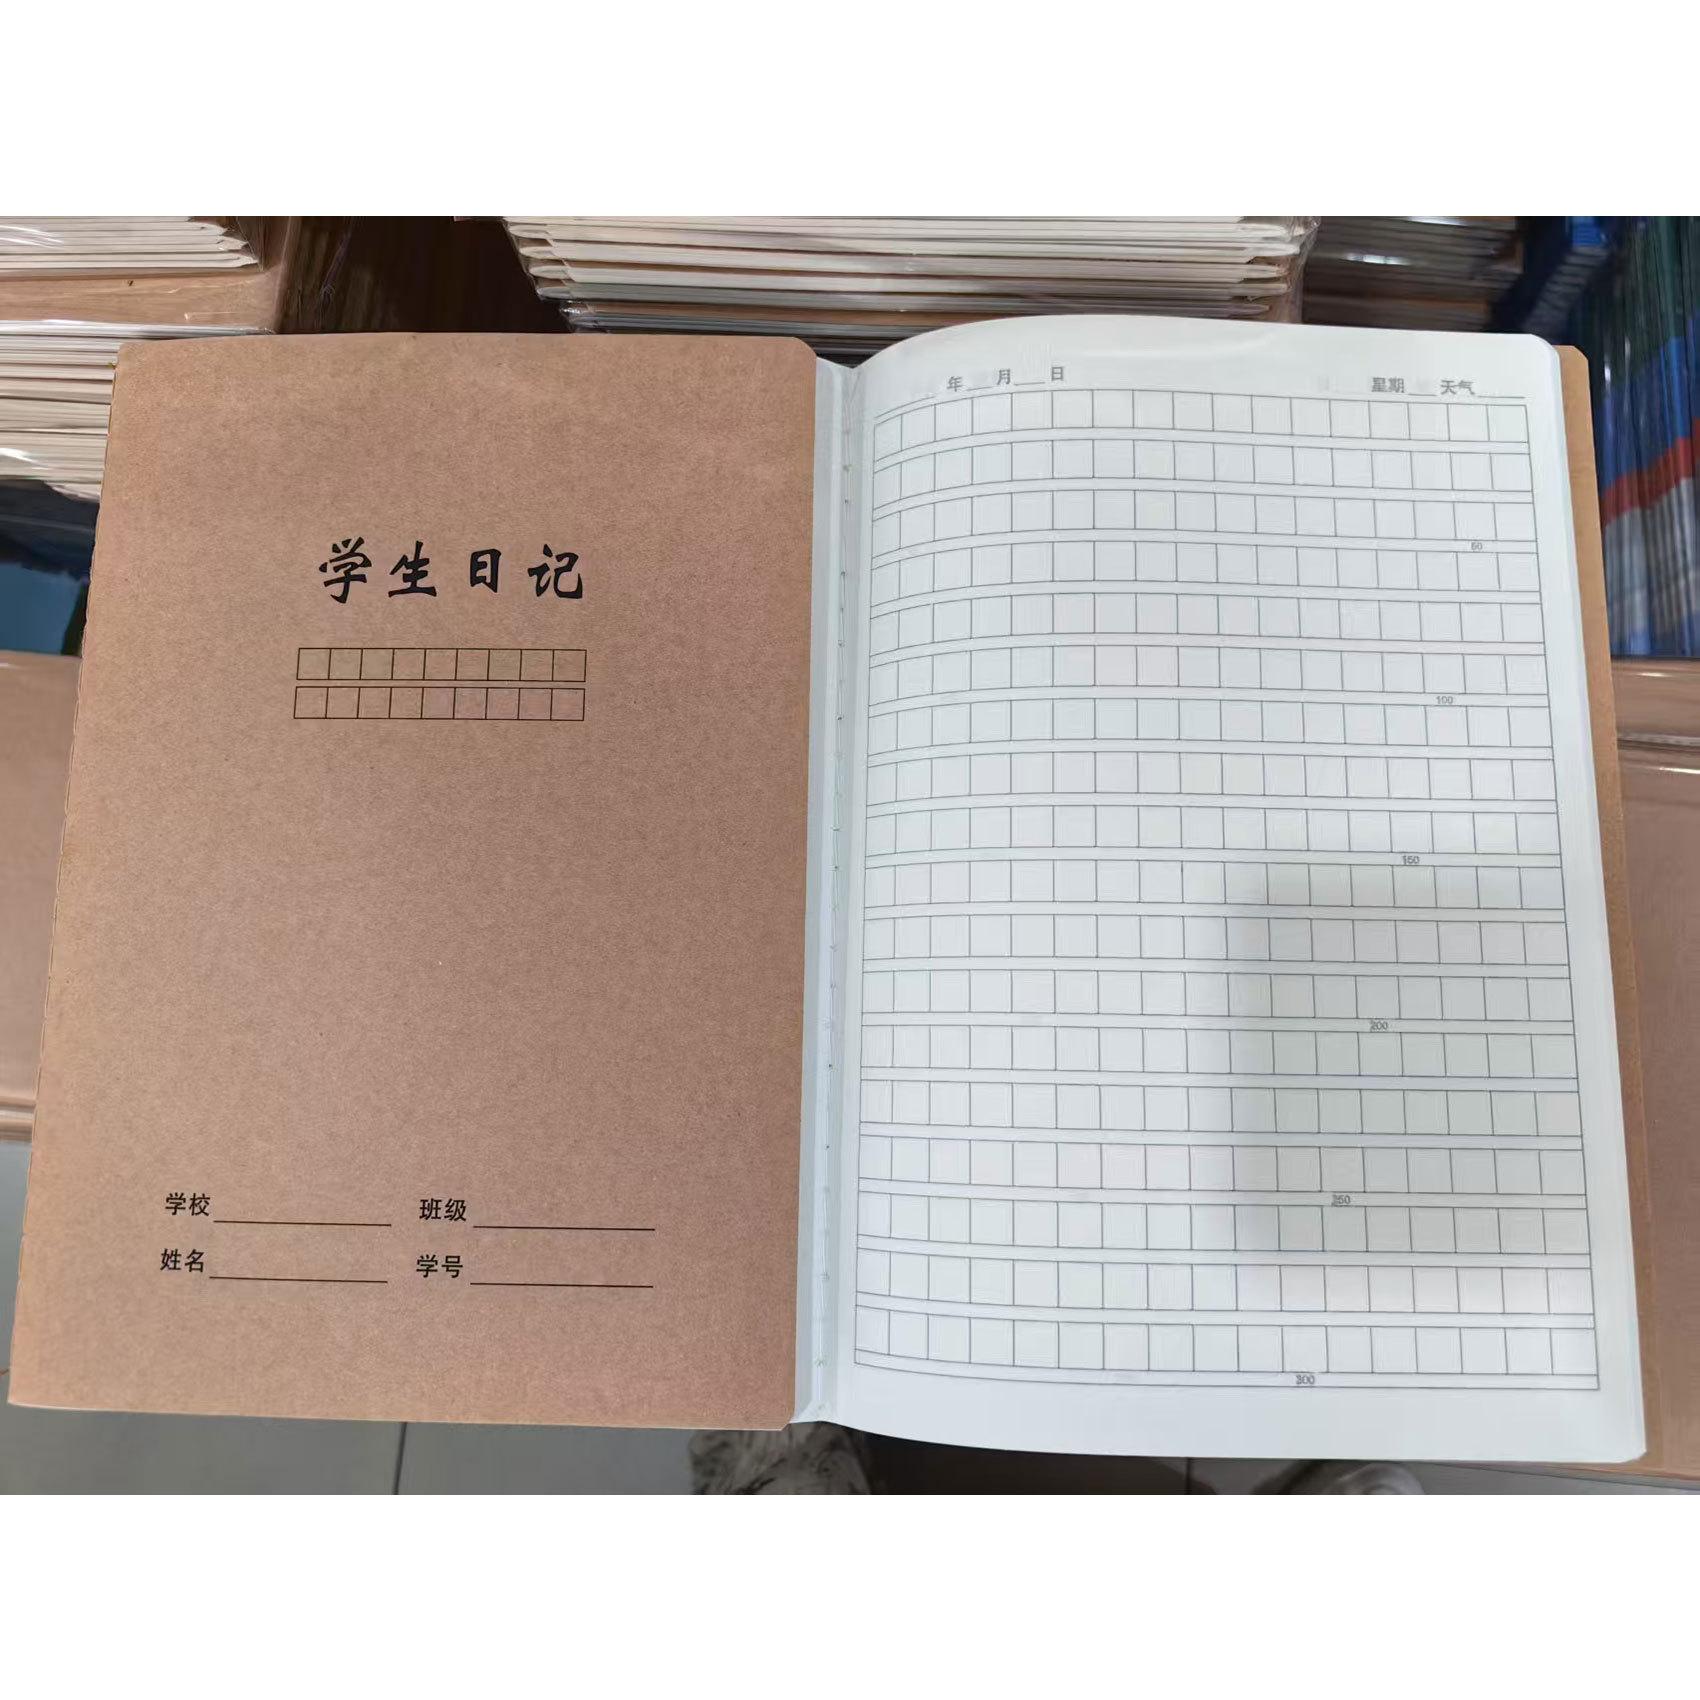 学生日记
学校 班级
姓名 学号
年 月 日 星期 天气
50
100
150
200
250
300